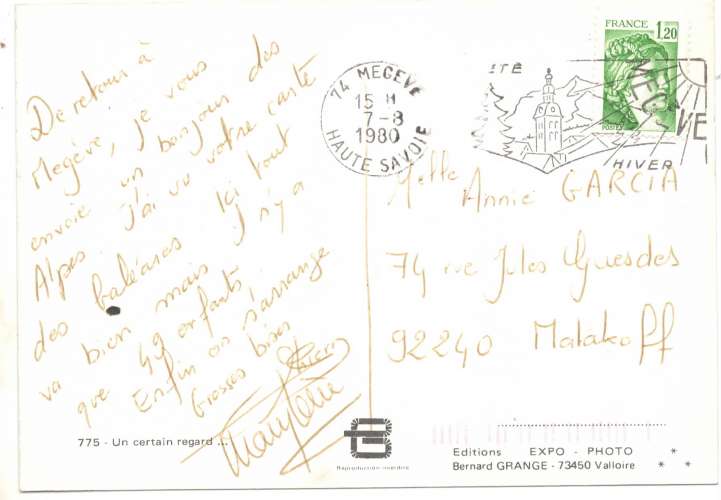 De retour à
Megève, je vous
envoie un bonjour des
Alpes. J'ai vu votre carte
des baléares. Ici tout
va bien mais il n'y a
que 49 enfants.
Enfin on s'arrange
Grosses bises
775 - Un certain regard ...
Reproduction interdite
FRANCE 1,20
POSTES
74 MEGEVE
15 H
7-8
1980
HAUTE SAVOIE
ETE
MEGEVE
HIVER
Melle Annie GARCIA
74 rue Jules Guesdes
92240 Malakoff
Editions EXPO - PHOTO
Bernard GRANGE - 73450 Valloire